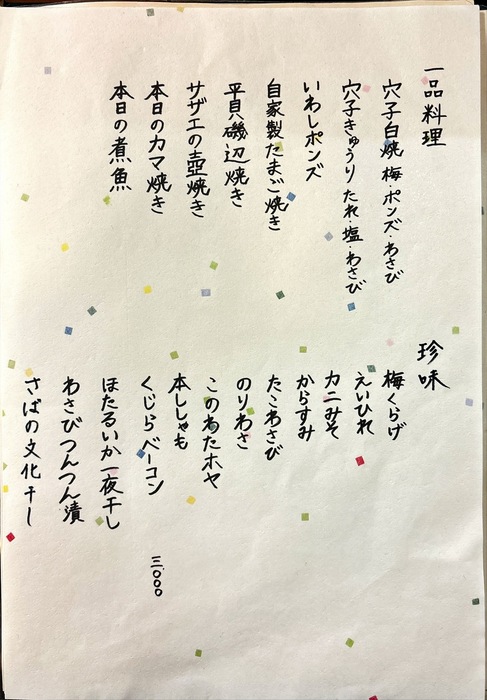 一品料理
穴子白焼 梅・ポンズ・わさび
穴子きゅうり たれ・塩・わさび
いわしポンズ
自家製たまご焼き
平貝磯辺焼き
サザエの壺焼き
本日のカマ焼き
本日の煮魚
珍味
梅くらげ
えいひれ
カニみそ
からすみ
たこわさび
のりわさ
このわたホヤ
本ししゃも
くじらベーコン 三、〇〇〇
ほたるいか一夜干し
わさびつんつん漬
さばの文化干し